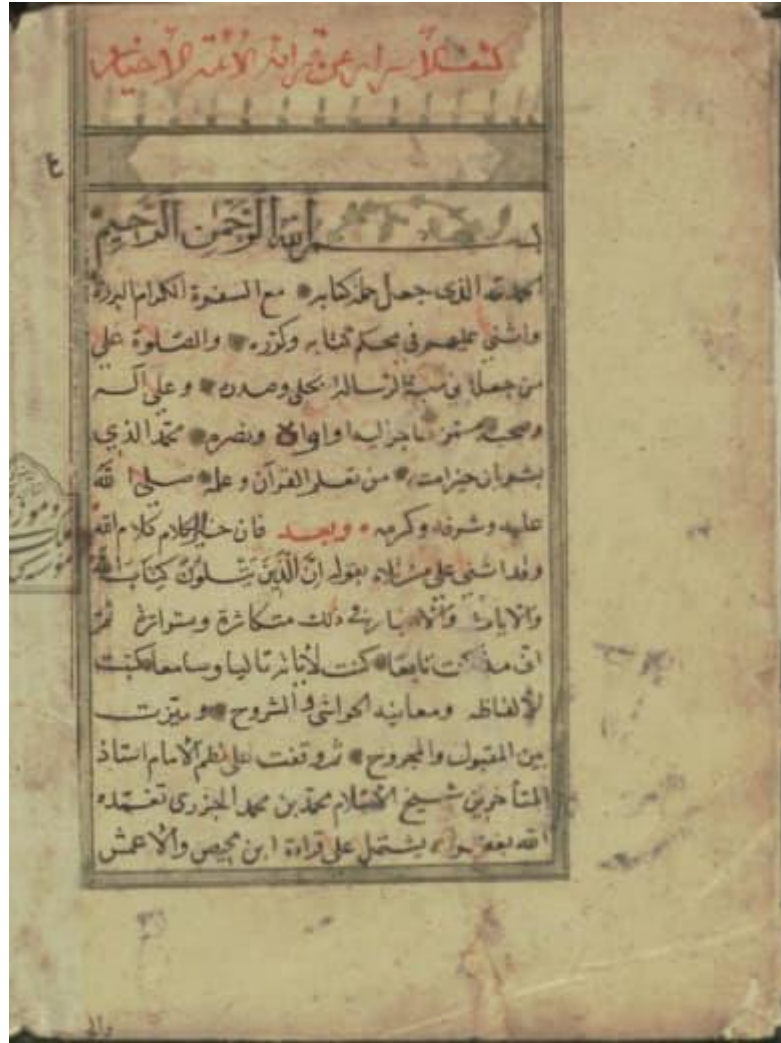 كشف الأسرار عن قراءة الأئمة الأخيار
٤
بسم الله الرحمن الرحيم
الحمد لله الذي جعل حملة كتابه مع السفرة الكرام البررة
واثنى عليهم في محكم كتابه وكرره والصلوة على
من جعل الرسالة وعلى آله
وصحبه ونصره محمد الذي
بشر بان خيرامته من تعلم القرآن وعلمه صلى الله
عليه وشرفه وكرمه وبعد فان خير الكلام كلام الله
وقد اثنى على من تلاه بقوله ان الذين يتلون كتاب الله
والايات والاخبار في ذلك متكاثرة ومتواترة ثم
اني مذ كنت يافعا كنت تاليا وسامعا كتبت
لألفاظه ومعانيه الحواشي والشروح وميزت
بين المقبول والمجروح ثم وقفت على نظم الامام استاذ
المتأخرين شيخ الاسلام محمد بن محمد الجزري تغمده
الله يشتمل على قراءة ابن محيصن والاعمش